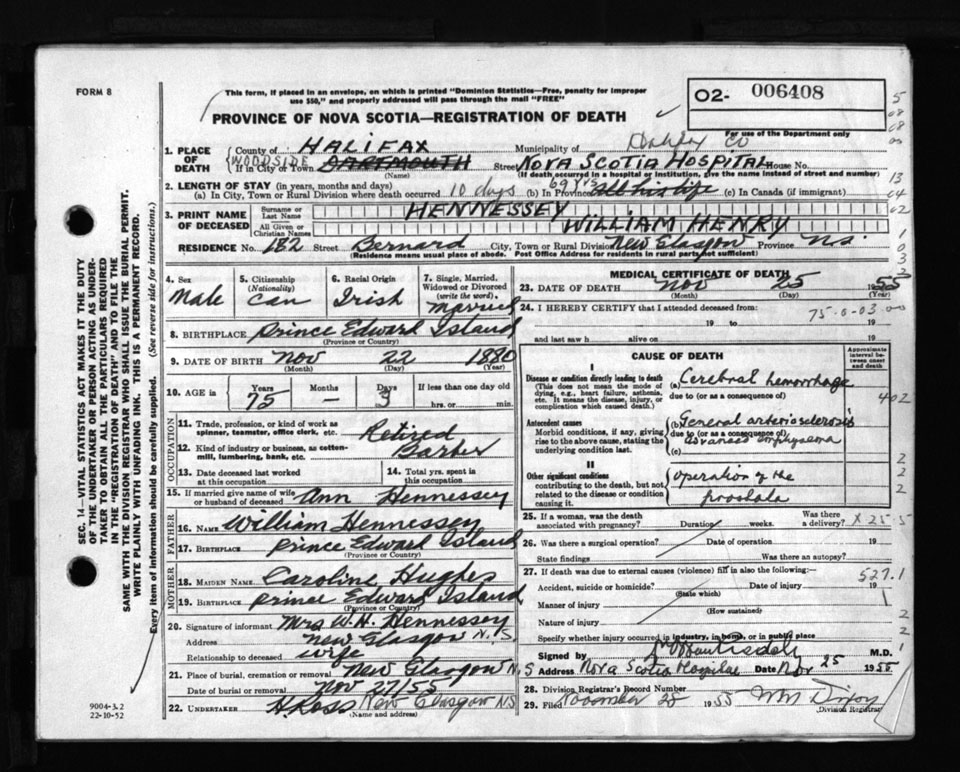 FORM 8
This form, if placed in an envelope, on which is printed "Dominion Statistics—Free, penalty for improper
use $50," and properly addressed will pass through the mail "FREE"
PROVINCE OF NOVA SCOTIA—REGISTRATION OF DEATH
O2- 006408
For use of the Department only
1. PLACE OF DEATH
County of HALIFAX Municipality of Halifax Co
WOODSIDE
If in City or Town DARTMOUTH Street NOVA SCOTIA HOSPITAL House No.
(Name) (If death occurred in a hospital or institution, give the name instead of street and number)
2. LENGTH OF STAY (in years, months and days)
(a) In City, Town or Rural Division where death occurred 10 days (b) In Province 69 yrs All his life (c) In Canada (if immigrant)
3. PRINT NAME OF DECEASED
Surname or Last Name HENNESSEY
All Given or Christian Names WILLIAM HENRY
RESIDENCE No. 182 Street Bernard City, Town or Rural Division New Glasgow Province N.S.
(Residence means usual place of abode. Post Office Address for residents in rural parts not sufficient)
4. Sex Male
5. Citizenship (Nationality) Can
6. Racial Origin Irish
7. Single, Married, Widowed or Divorced (write the word) Married
8. BIRTHPLACE Prince Edward Island
(Province or Country)
9. DATE OF BIRTH Nov 22 1880
(Month) (Day) (Year)
10. AGE in Years Months Days If less than one day old
75 — 3 hrs. or min.
OCCUPATION
11. Trade, profession, or kind of work as spinner, teamster, office clerk, etc. Retired
12. Kind of industry or business, as cotten-mill, lumbering, bank, etc. Barber
13. Date deceased last worked at this occupation
14. Total yrs. spent in this occupation
15. If married give name of wife or husband of deceased Ann Hennessey
FATHER
16. NAME William Hennessey
17. BIRTHPLACE Prince Edward Island
(Province or Country)
MOTHER
18. MAIDEN NAME Caroline Hughes
19. BIRTHPLACE Prince Edward Island
(Province or Country)
20. Signature of informant Mrs W. H. Hennessey
Address New Glasgow N.S.
Relationship to deceased wife
21. Place of burial, cremation or removal New Glasgow N.S
Date of burial or removal Nov 27/55
22. UNDERTAKER H. Ross New Glasgow NS
(Name and address)
MEDICAL CERTIFICATE OF DEATH
23. DATE OF DEATH Nov 25 1955
(Month) (Day) (Year)
24. I HEREBY CERTIFY that I attended deceased from:
75-0-03
19 to 19
and last saw h alive on 19
CAUSE OF DEATH
Approximate interval between onset and death
I
Disease or condition directly leading to death
(This does not mean the mode of dying, e.g., heart failure, asthenia, etc. It means the disease, injury, or complication which caused death.)
(a) Cerebral hemorrhage
due to (or as a consequence of)
402
Antecedent causes
Morbid conditions, if any, giving rise to the above cause, stating the underlying condition last.
(b) General arteriosclerosis
due to (or as a consequence of)
advanced emphysema
(c)
II
Other significant conditions
contributing to the death, but not related to the disease or condition causing it.
operation of the
prostate
25. If a woman, was the death associated with pregnancy? Duration weeks. Was there a delivery?
26. Was there a surgical operation? Date of operation 19
State findings Was there an autopsy?
27. If death was due to external causes (violence) fill in also the following:—
527.1
Accident, suicide or homicide? Date of injury 19
(State which)
Manner of injury
(How sustained)
Nature of injury
Specify whether injury occurred in industry, in home, or in public place
Signed by M.D.
Address Nova Scotia Hospital Date Nov 25 1955
28. Division Registrar's Record Number
29. Filed November 25 1955
Division Registrar
SEC. 14—VITAL STATISTICS ACT MAKES IT THE DUTY
OF THE UNDERTAKER OR PERSON ACTING AS UNDER-
TAKER TO OBTAIN ALL THE PARTICULARS REQUIRED
IN THE "REGISTRATION OF DEATH" AND TO FILE THE
SAME WITH THE DIVISION REGISTRAR WHO SHALL ISSUE THE BURIAL PERMIT.
WRITE PLAINLY WITH UNFADING INK. THIS IS A PERMANENT RECORD.
Every item of information should be carefully supplied. (See reverse side for instructions.)
9004-3.2
22-10-52